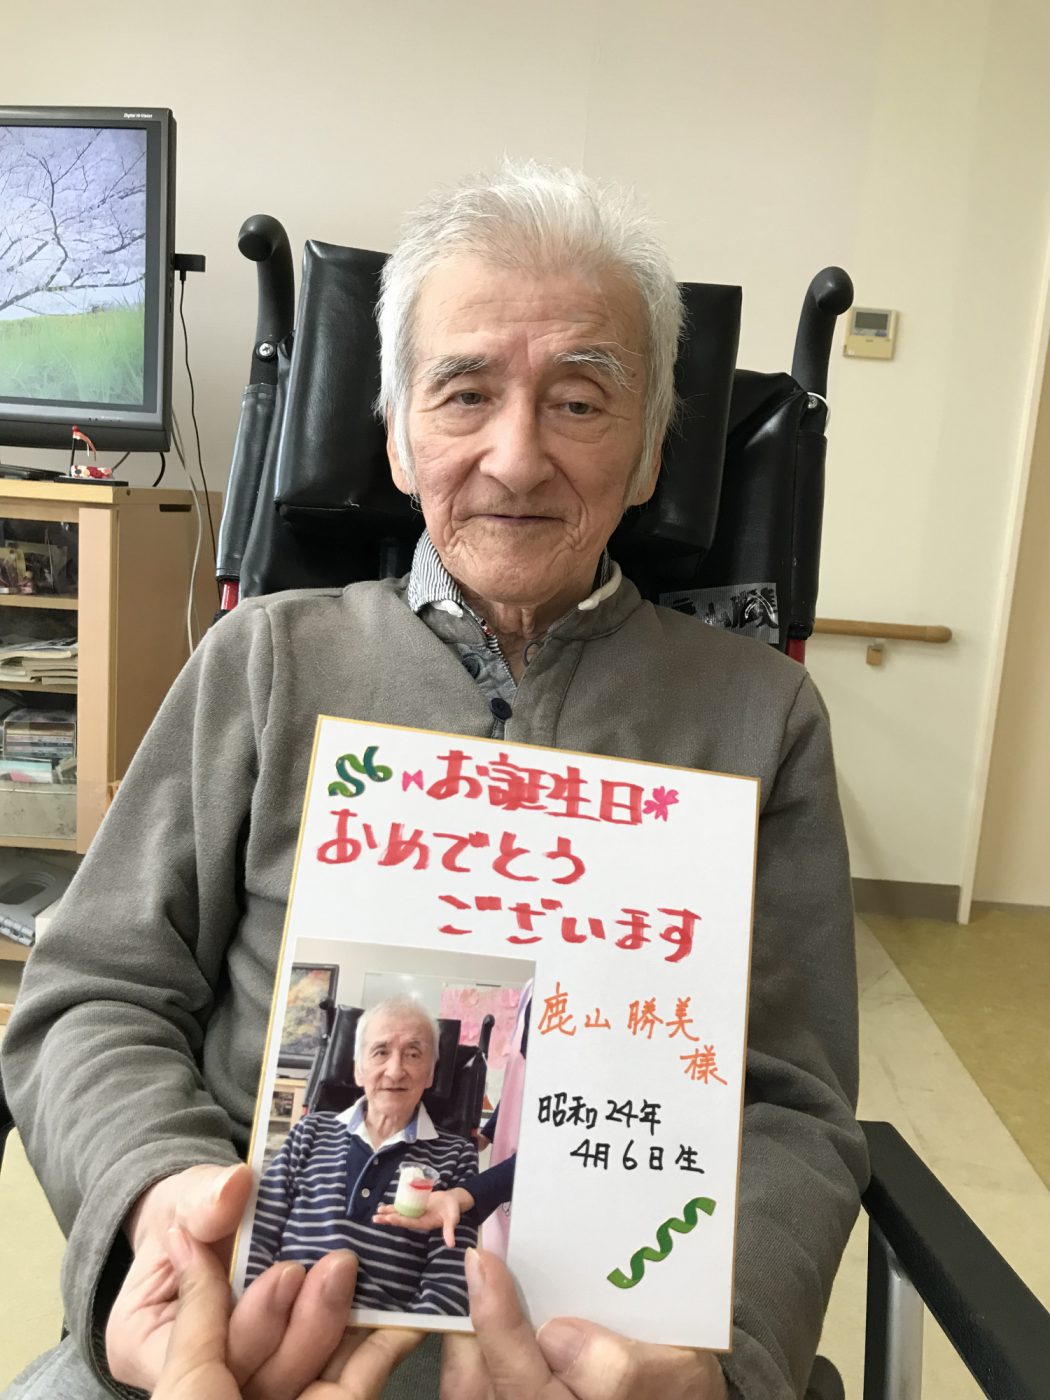 Digital Hi-Vision
お誕生日
おめでとう
ございます
鹿山 勝美
様
昭和24年
4月6日生